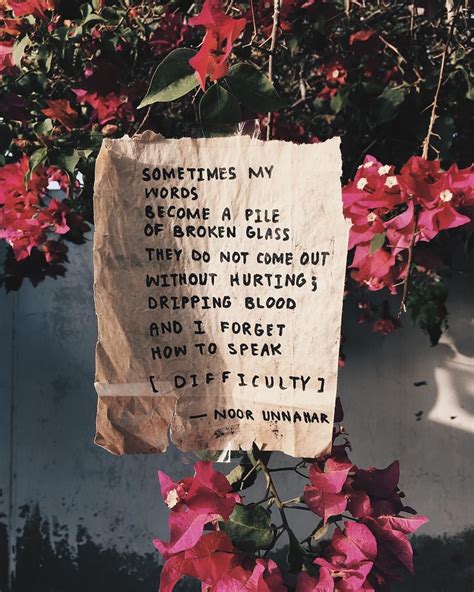 SOMETIMES MY
WORDS
BECOME A PILE
OF BROKEN GLASS
THEY DO NOT COME OUT
WITHOUT HURTING;
DRIPPING BLOOD
AND I FORGET
HOW TO SPEAK
[ DIFFICULTY ]
— NOOR UNNAHAR